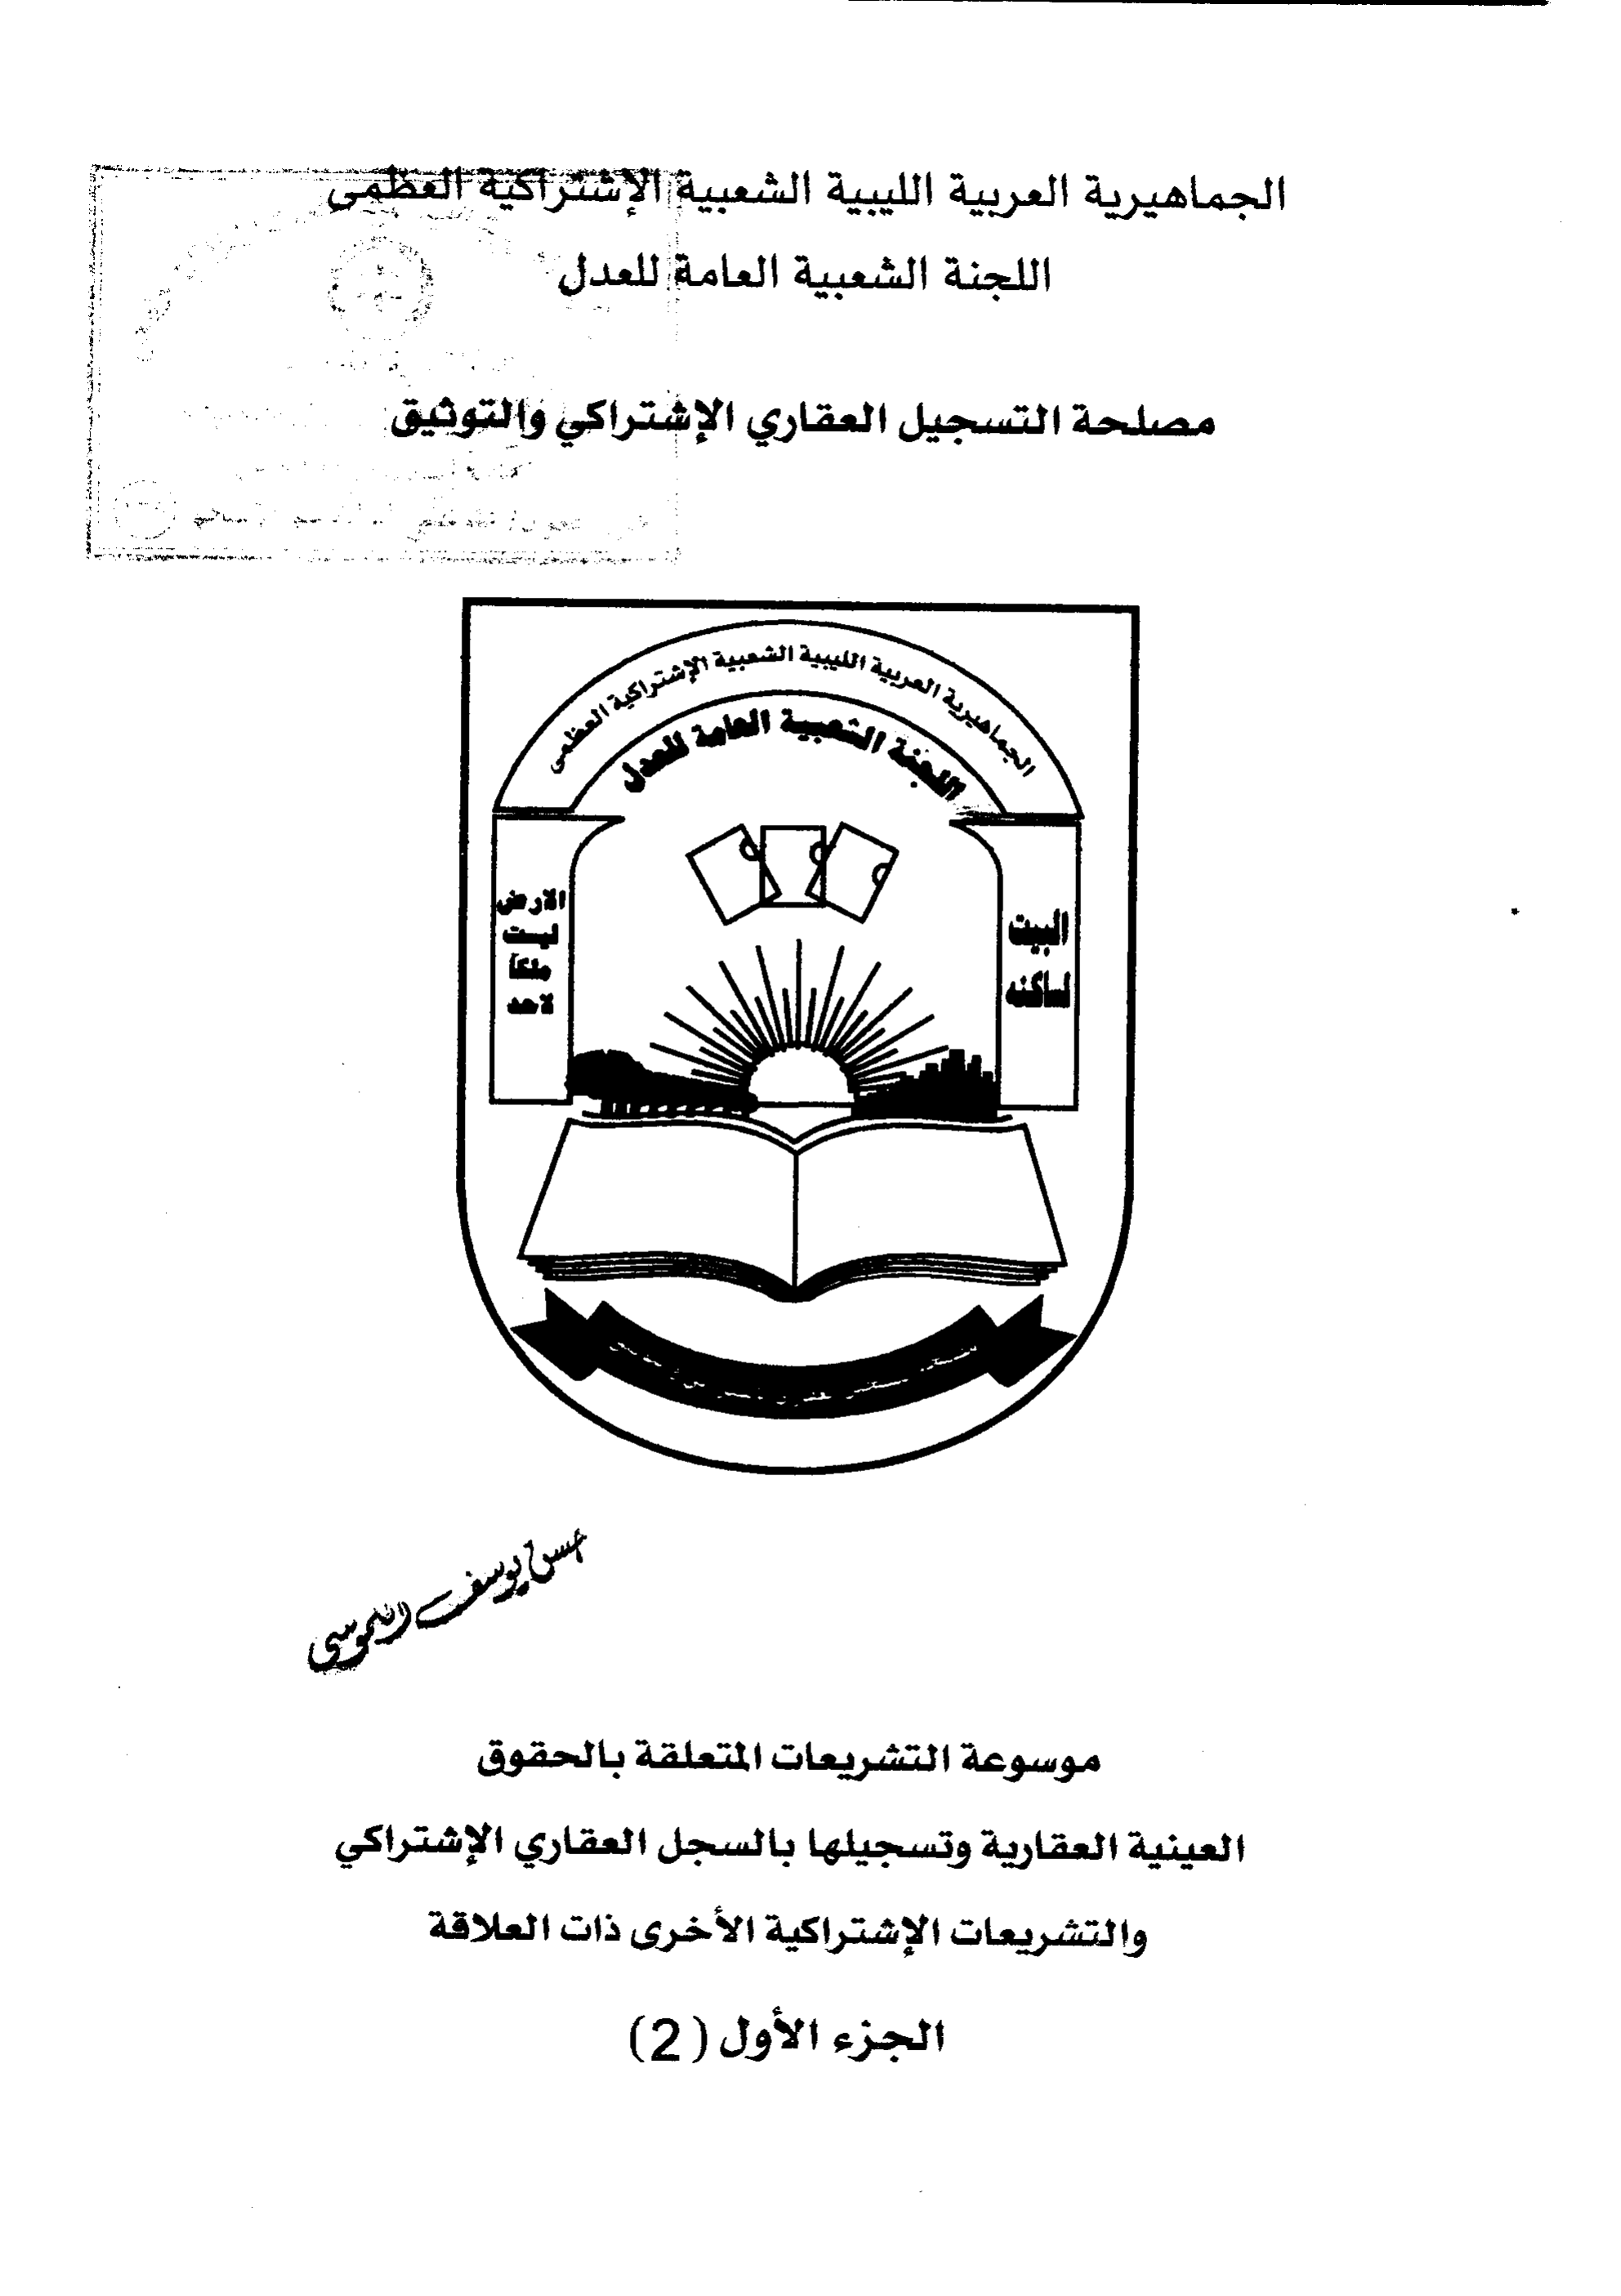 الجماهيرية العربية الليبية الشعبية الإشتراكية العظمى
اللجنة الشعبية العامة للعدل
مصلحة التسجيل العقاري الإشتراكي والتوثيق
الجماهيرية العربية الليبية الشعبية الإشتراكية العظمى
اللجنة الشعبية العامة للعدل
البيت
لساكنه
الارض
ليست
ملكاً
لاحد
يوسف
موسوعة التشريعات المتعلقة بالحقوق
العينية العقارية وتسجيلها بالسجل العقاري الإشتراكي
والتشريعات الإشتراكية الأخرى ذات العلاقة
الجزء الأول (2)